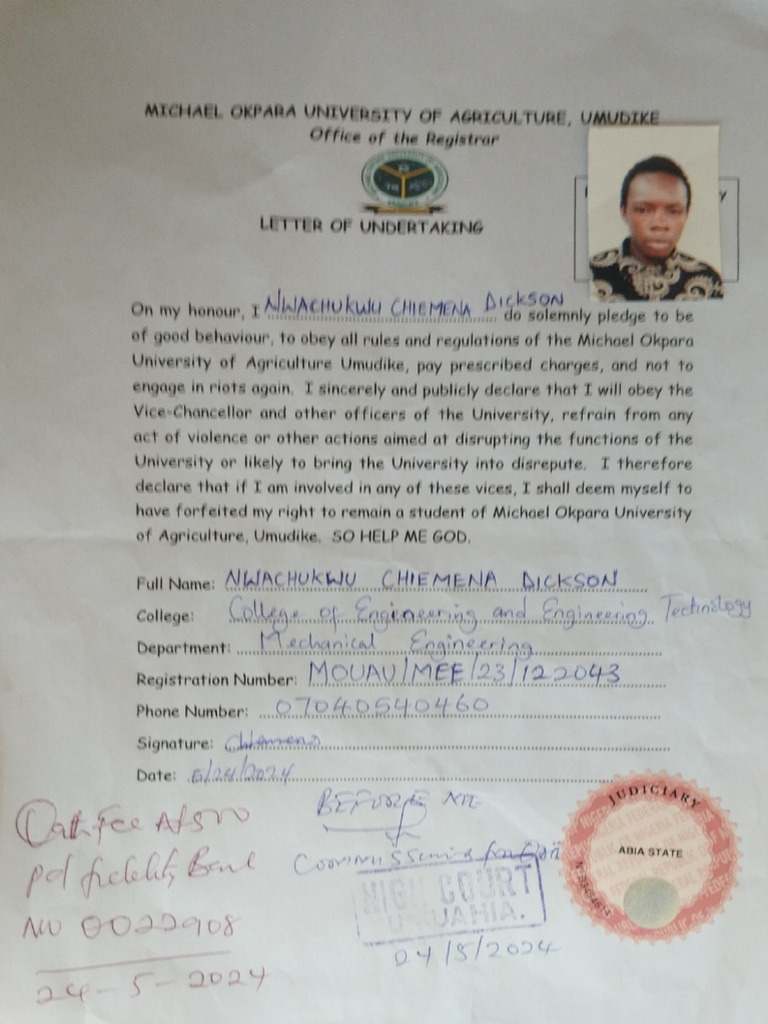 MICHAEL OKPARA UNIVERSITY OF AGRICULTURE, UMUDIKE
Office of the Registrar
LETTER OF UNDERTAKING
On my honour, I NWACHUKWU CHIEMENA DICKSON do solemnly pledge to be
of good behaviour, to obey all rules and regulations of the Michael Okpara
University of Agriculture Umudike, pay prescribed charges, and not to
engage in riots again. I sincerely and publicly declare that I will obey the
Vice-Chancellor and other officers of the University, refrain from any
act of violence or other actions aimed at disrupting the functions of the
University or likely to bring the University into disrepute. I therefore
declare that if I am involved in any of these vices, I shall deem myself to
have forfeited my right to remain a student of Michael Okpara University
of Agriculture, Umudike. SO HELP ME GOD.
Full Name: NWACHUKWU CHIEMENA DICKSON
College: College of Engineering and Engineering Technology
Department: Mechanical Engineering
Registration Number: MOUAU/MEE/23/122043
Phone Number: 07040540460
Signature: Chiemena
Date: 5/24/2024
Oath Fee
pd fidelity Bank
NO 0022908
24-5-2024
BEFORE ME
HIGH COURT
UMUAHIA.
24/5/2024
JUDICIARY
ABIA STATE